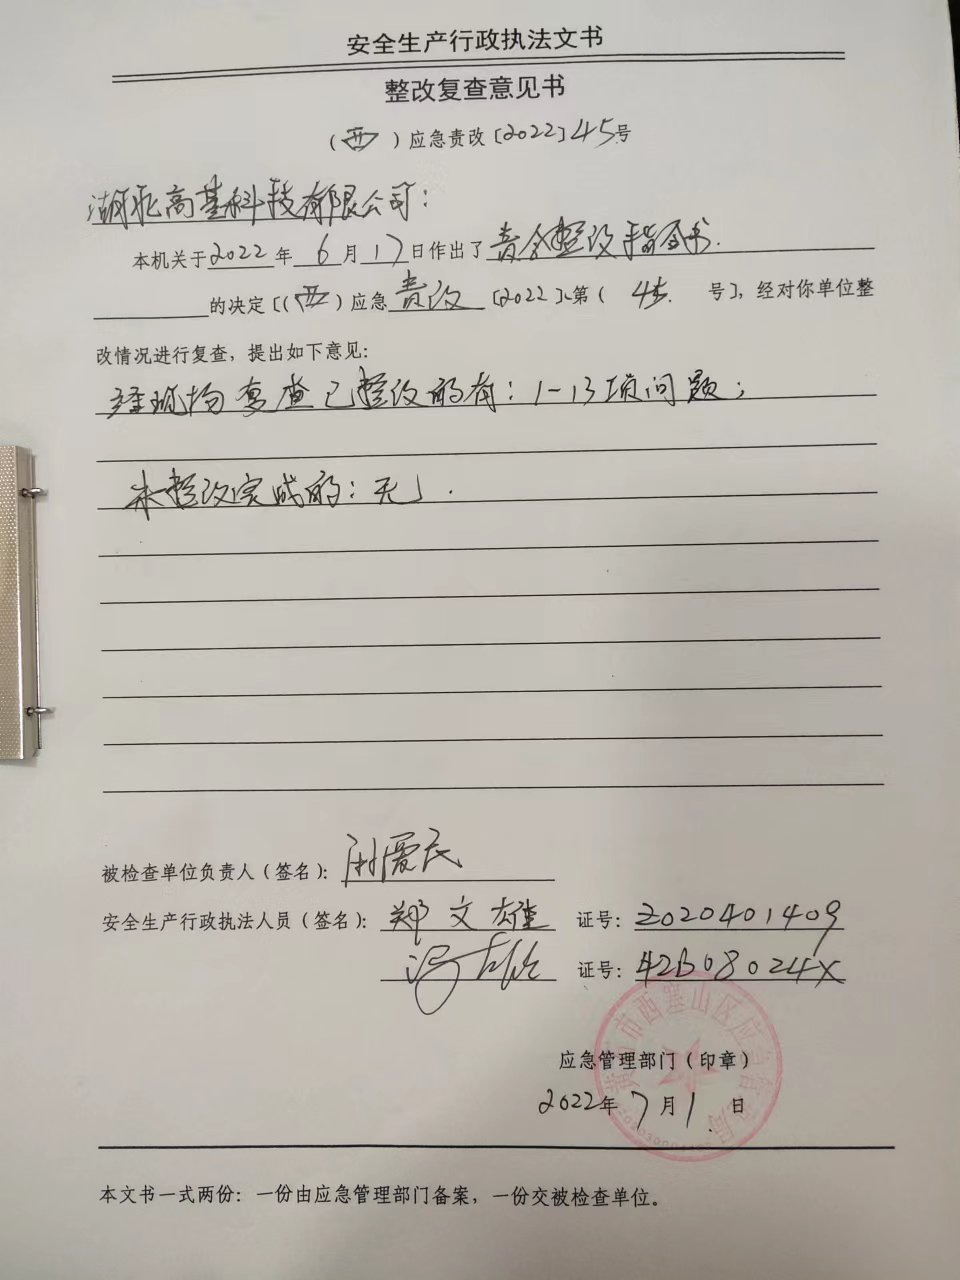 安全生产行政执法文书
整改复查意见书
（西）应急责改〔2022〕45号
湖北高基科技有限公司：
本机关于2022年6月17日作出了责令整改指令书.
的决定〔（西）应急责改〔2022〕、第（45.号〕，经对你单位整
改情况进行复查，提出如下意见：
经现场复查已整改的有：1-13项问题；
未整改完成的：无」.
被检查单位负责人（签名）：
安全生产行政执法人员（签名）：郑文雄 证号：Z020401409
冯 证号：42B08024X
黄石市西塞山区应急管理局
应急管理部门（印章）
2022年7月1日
本文书一式两份：一份由应急管理部门备案，一份交被检查单位。